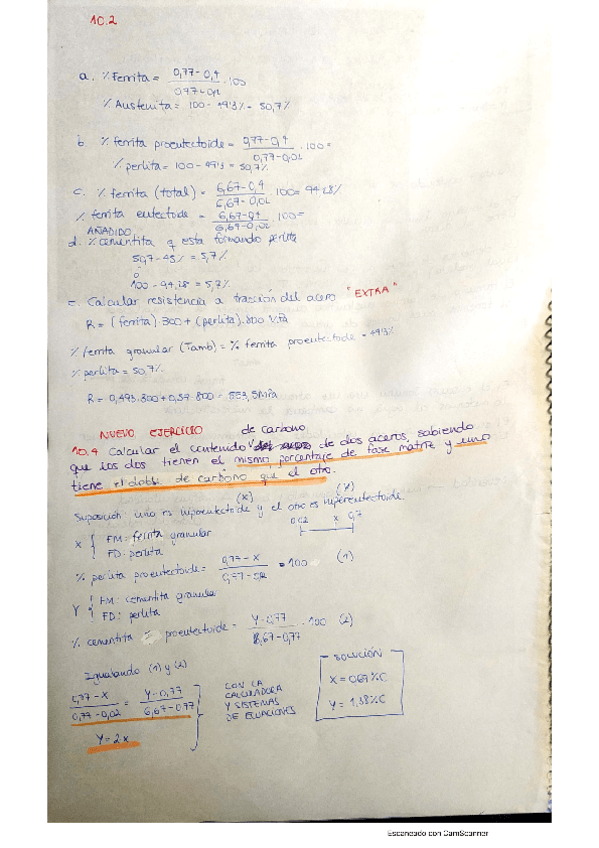 10.2
a. % Ferrita = (0,77-0,4)/(0,77-0,02) . 100
% Austenita = 100 - 49'3% = 50,7%
b % ferrita proeutectoide = (0,77-0,4)/(0,77-0,02) . 100 =
% perlita = 100 - 49'3 = 50,7%
c. % ferrita (total) = (6,67-0,4)/(6,67-0,02) . 100 = 94'28%
% ferrita eutectoide = (6,67-0,4)/(6,67-0,02) . 100 =
AÑADIDO
d. % cementita q esta formando perlita
50,7 - 45% = 5,7%
o
100 - 94,28 = 5,7%
e. Calcular resistencia a tracción del acero "EXTRA"
R = (ferrita) 300 + (perlita) . 800
% ferrita granular (Tamb) = % ferrita proeutectoide = 49'3%
% perlita = 50,7%
R = 0,493.300 + 0,507. 800 = 553,5 MPa
NUEVO EJERCICIO
10.4 Calcular el contenido de carbono de dos aceros, sabiendo
que los dos tienen el mismo porcentaje de fase matriz y uno
tiene el doble de carbono que el otro.
Suposición: uno es hipoeutectoide (X) y el otro es hipereutectoide (Y)
0'02 x 0,7
X { FM: ferrita granular
FD: perlita
% perlita proeutectoide = (0,77-X)/(0,77-0,02) . 100 (1)
Y { FM: cementita granular
FD: perlita
% cementita proeutectoide = (Y-0,77)/(6,67-0,77) . 100 (2)
Igualando (1) y (2)
(0,77-X)/(0,77-0,02) = (Y-0,77)/(6,67-0,77)
Y = 2x
CON LA
CALCULADORA
Y SISTEMAS
DE ECUACIONES
SOLUCIÓN
X = 0'69%C
Y = 1,38%C
Escaneado con CamScanner